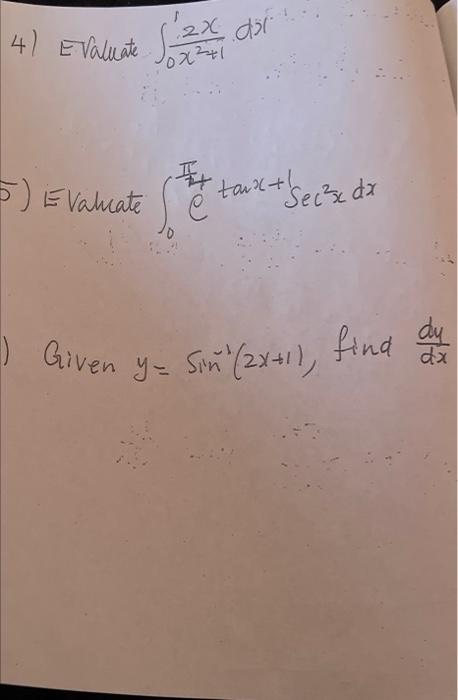 4) Evaluate ∫₀¹ 2x/(x²+1) dx
5) Evaluate ∫₀^(π/4) e^(tanx+1) Sec²x dx
) Given y = Sin⁻¹(2x+1), find dy/dx